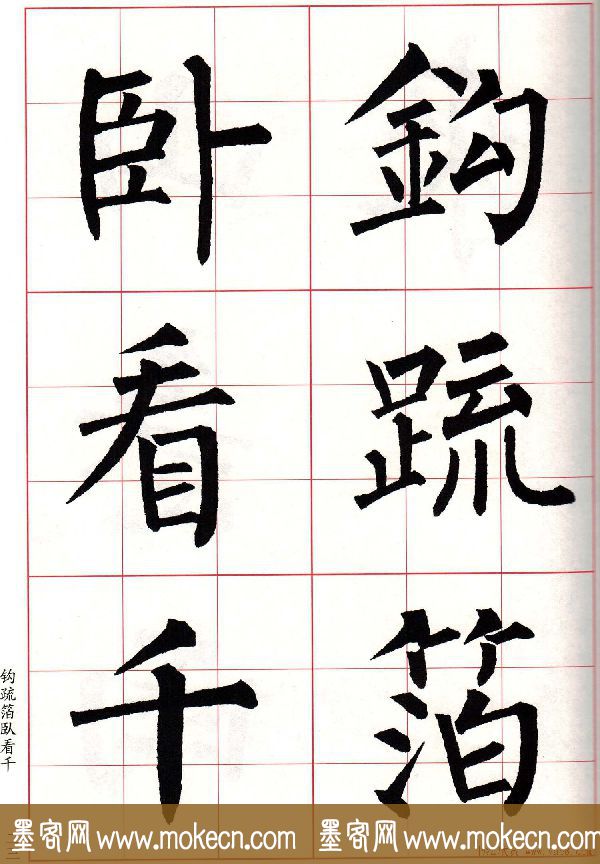 鈎疏箔
卧看千
钩疏箔卧看千
墨客网www.mokecn.com 墨客网www.mokecn.com